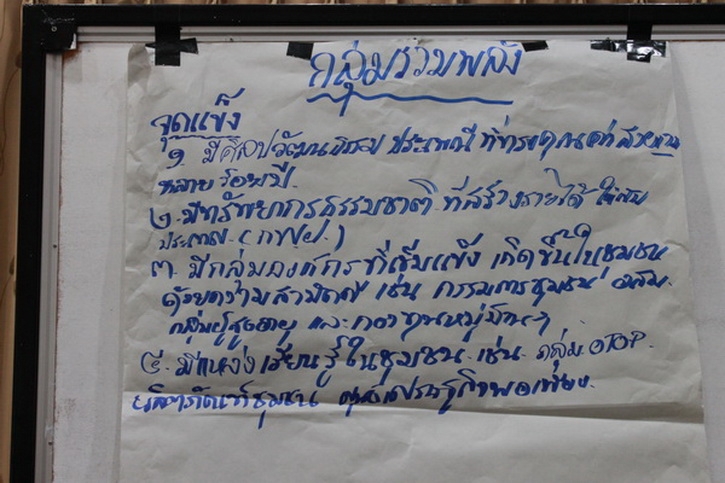 กลุ่มรวมพลัง
จุดแข็ง
๑. มีศิลปวัฒนธรรม ประเพณี ที่ทรงคุณค่า สืบทอด
หลายร้อยปี.
๒. มีทรัพยากรธรรมชาติ ที่สร้างรายได้ ให้กับ
ประชาชน.
๓. มีกลุ่มองค์กรที่เข้มแข็ง เกิดขึ้นในชุมชน
ด้วยความสามัคคี เช่น กรรมการชุมชน อสม.
กลุ่มผู้สูงอายุ และกองทุนหมู่บ้านฯ
๔. มีแหล่งเรียนรู้ในชุมชน เช่น กลุ่ม OTOP.
ผลิตภัณฑ์ชุมชน ศูนย์เศรษฐกิจพอเพียง.